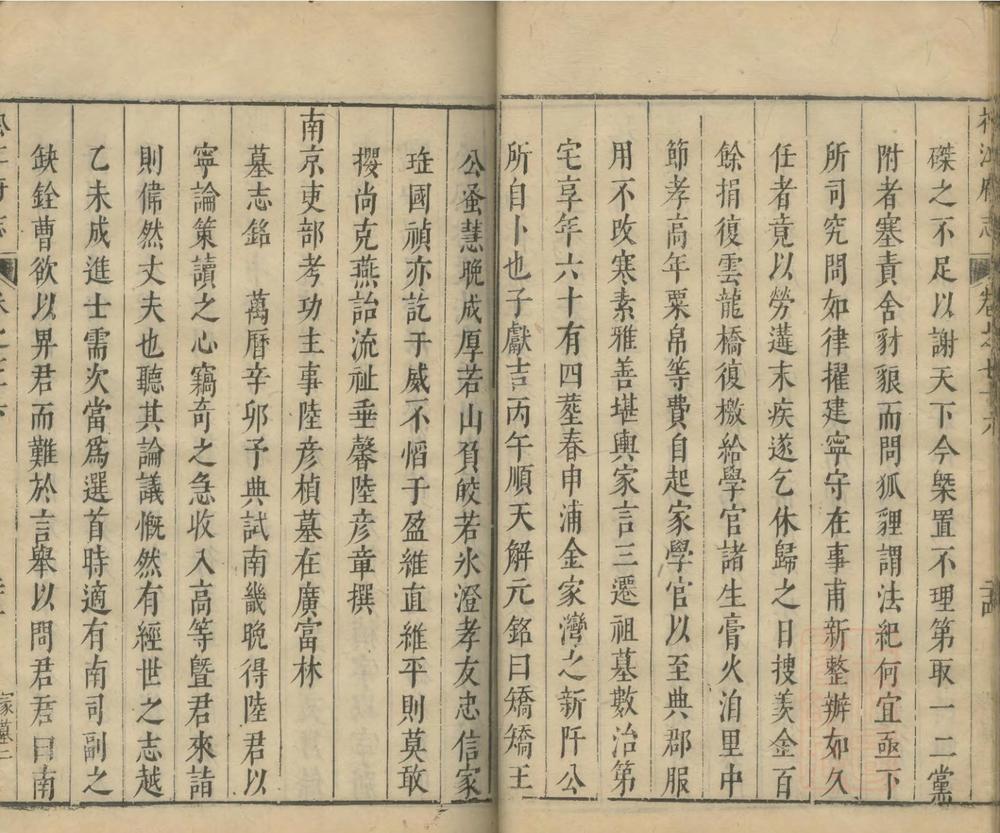 磔之不足以謝天下今槩置不理第取一二黨
附者塞責舍豺狼而問狐狸謂法紀何宜亟下
所司究問如律擢建寧守在事甫新整辦如久
任者竟以勞遘末疾遂乞休歸之日捜羡金百
餘捐復雲龍橋復檄給學官諸生膏火洎里中
節孝高年粟帛等費自起家學官以至典郡服
用不改寒素雅善堪輿家言三遷祖墓數治第
宅享年六十有四塟春申浦金家灣之新阡公
所自卜也子獻吉丙午順天解元銘曰矯矯王
公蚤慧晚成厚若山負皎若氷澄孝友忠信家
琟國禎亦訖于威不慆于盈維直維平則莫敢
攖尚克燕詒流祉垂馨陸彦章撰
南京吏部考功主事陸彦楨墓在廣富林
墓志銘 萬曆辛夘予典試南畿晚得陸君以
寧論策讀之心竊奇之急收入高等曁君來謁
則偉然丈夫也聽其論議慨然有經世之志越
乙未成進士需次當爲選首時適有南司副之
缺銓曹欲以畀君而難於言舉以問君君曰南